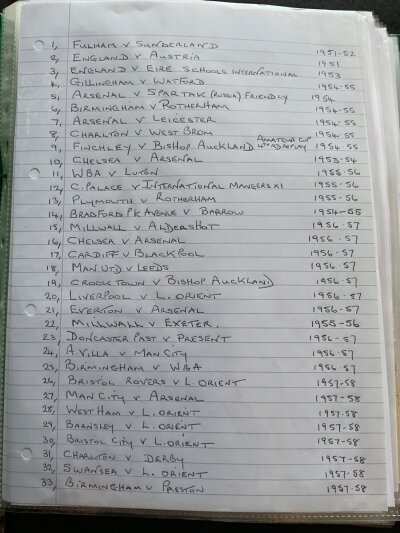 1, FULHAM V SUNDERLAND 1951-52
2, ENGLAND V AUSTRIA 1951
3, ENGLAND V EIRE SCHOOLS INTERNATIONAL 1953
4, GILLINGHAM V WATFORD 1954-55
5, ARSENAL V SPARTAK (RUSSIA) FRIENDLY 1954
6, BIRMINGHAM V ROTHERHAM 1954-55
7, ARSENAL V LEICESTER 1954-55
8, CHARLTON V WEST BROM 1954-55
9, FINCHLEY V BISHOP AUCKLAND AMATEUR CUP REPLAY 1954 55
10, CHELSEA V ARSENAL 1953-54
11, WBA V LUTON 1955-56
12, C.PALACE V INTERNATIONAL MANGERS XI 1955-56
13, PLYMOUTH V ROTHERHAM 1955-56
14, BRADFORD PK AVENUE V BARROW 1954-55
15, MILLWALL V ALDERSHOT 1956-57
16, CHELSEA V ARSENAL 1956-57
17, CARDIFF V BLACKPOOL 1956-57
18, MAN UTD V LEEDS 1956-57
19, CROOK TOWN V BISHOP AUCKLAND 1956-57
20, LIVERPOOL V L. ORIENT 1956-57
21, EVERTON V ARSENAL 1956-57
22, MILLWALL V EXETER. 1955-56
23, DONCASTER PAST V PRESENT 1956-57
24, A VILLA V MAN CITY 1956-57
25, BIRMINGHAM V WBA 1956-57
26, BRISTOL ROVERS V L. ORIENT 1957-58
27, MAN CITY V ARSENAL 1957-58
28, WEST HAM V L. ORIENT 1957-58
29, BARNSLEY V L. ORIENT 1957-58
30, BRISTOL CITY V L. ORIENT 1957-58
31, CHARLTON V DERBY 1957-58
32, SWANSEA V L. ORIENT 1957-58
33, BIRMINGHAM V PRESTON 1957-58